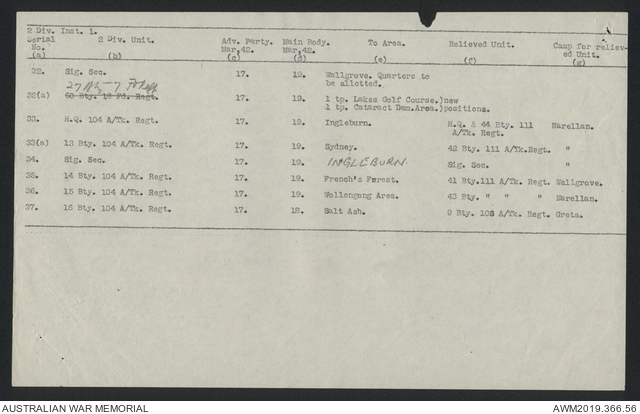 2 Div. Inst. 1.
Serial No. (a) 2 Div. Unit. (b) Adv. Party. Mar,42. (c) Main Body. Mar,42. (d) To Area. (e) Relieved Unit. (f) Camp for reliev-ed Unit. (g)
32. Sig. Sec. 17. 19. Wallgrove. Quarters to
be allotted.
32(a) 60 Bty. 18 Fd. Regt. 17. 19. 1 tp. Lakes Golf Course.)new
1 tp. Cataract Dam.Area.)positions.
33. H.Q. 104 A/Tk. Regt. 17. 19. Ingleburn. H.Q. & 44 Bty. 111 Narellan.
A/Tk. Regt.
33(a) 13 Bty. 104 A/Tk. Regt. 17. 19. Sydney. 42 Bty. 111 A/Tk.Regt. "
34. Sig. Sec. 17. 19. INGLEBURN. Sig. Sec. "
35. 14 Bty. 104 A/Tk. Regt. 17. 19. French's Forest. 41 Bty.111 A/Tk. Regt. Wallgrove.
36. 15 Bty. 104 A/Tk. Regt. 17. 19. Wollongong Area. 43 Bty. " " " Narellan.
37. 16 Bty. 104 A/Tk. Regt. 17. 18. Salt Ash. 9 Bty. 108 A/Tk. Regt. Greta.
AUSTRALIAN WAR MEMORIAL AWM2019.366.56